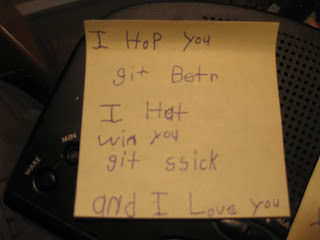 I HoP you
git Betr
I Hat
win you
git ssick
and I Love you
MIN
WAKE